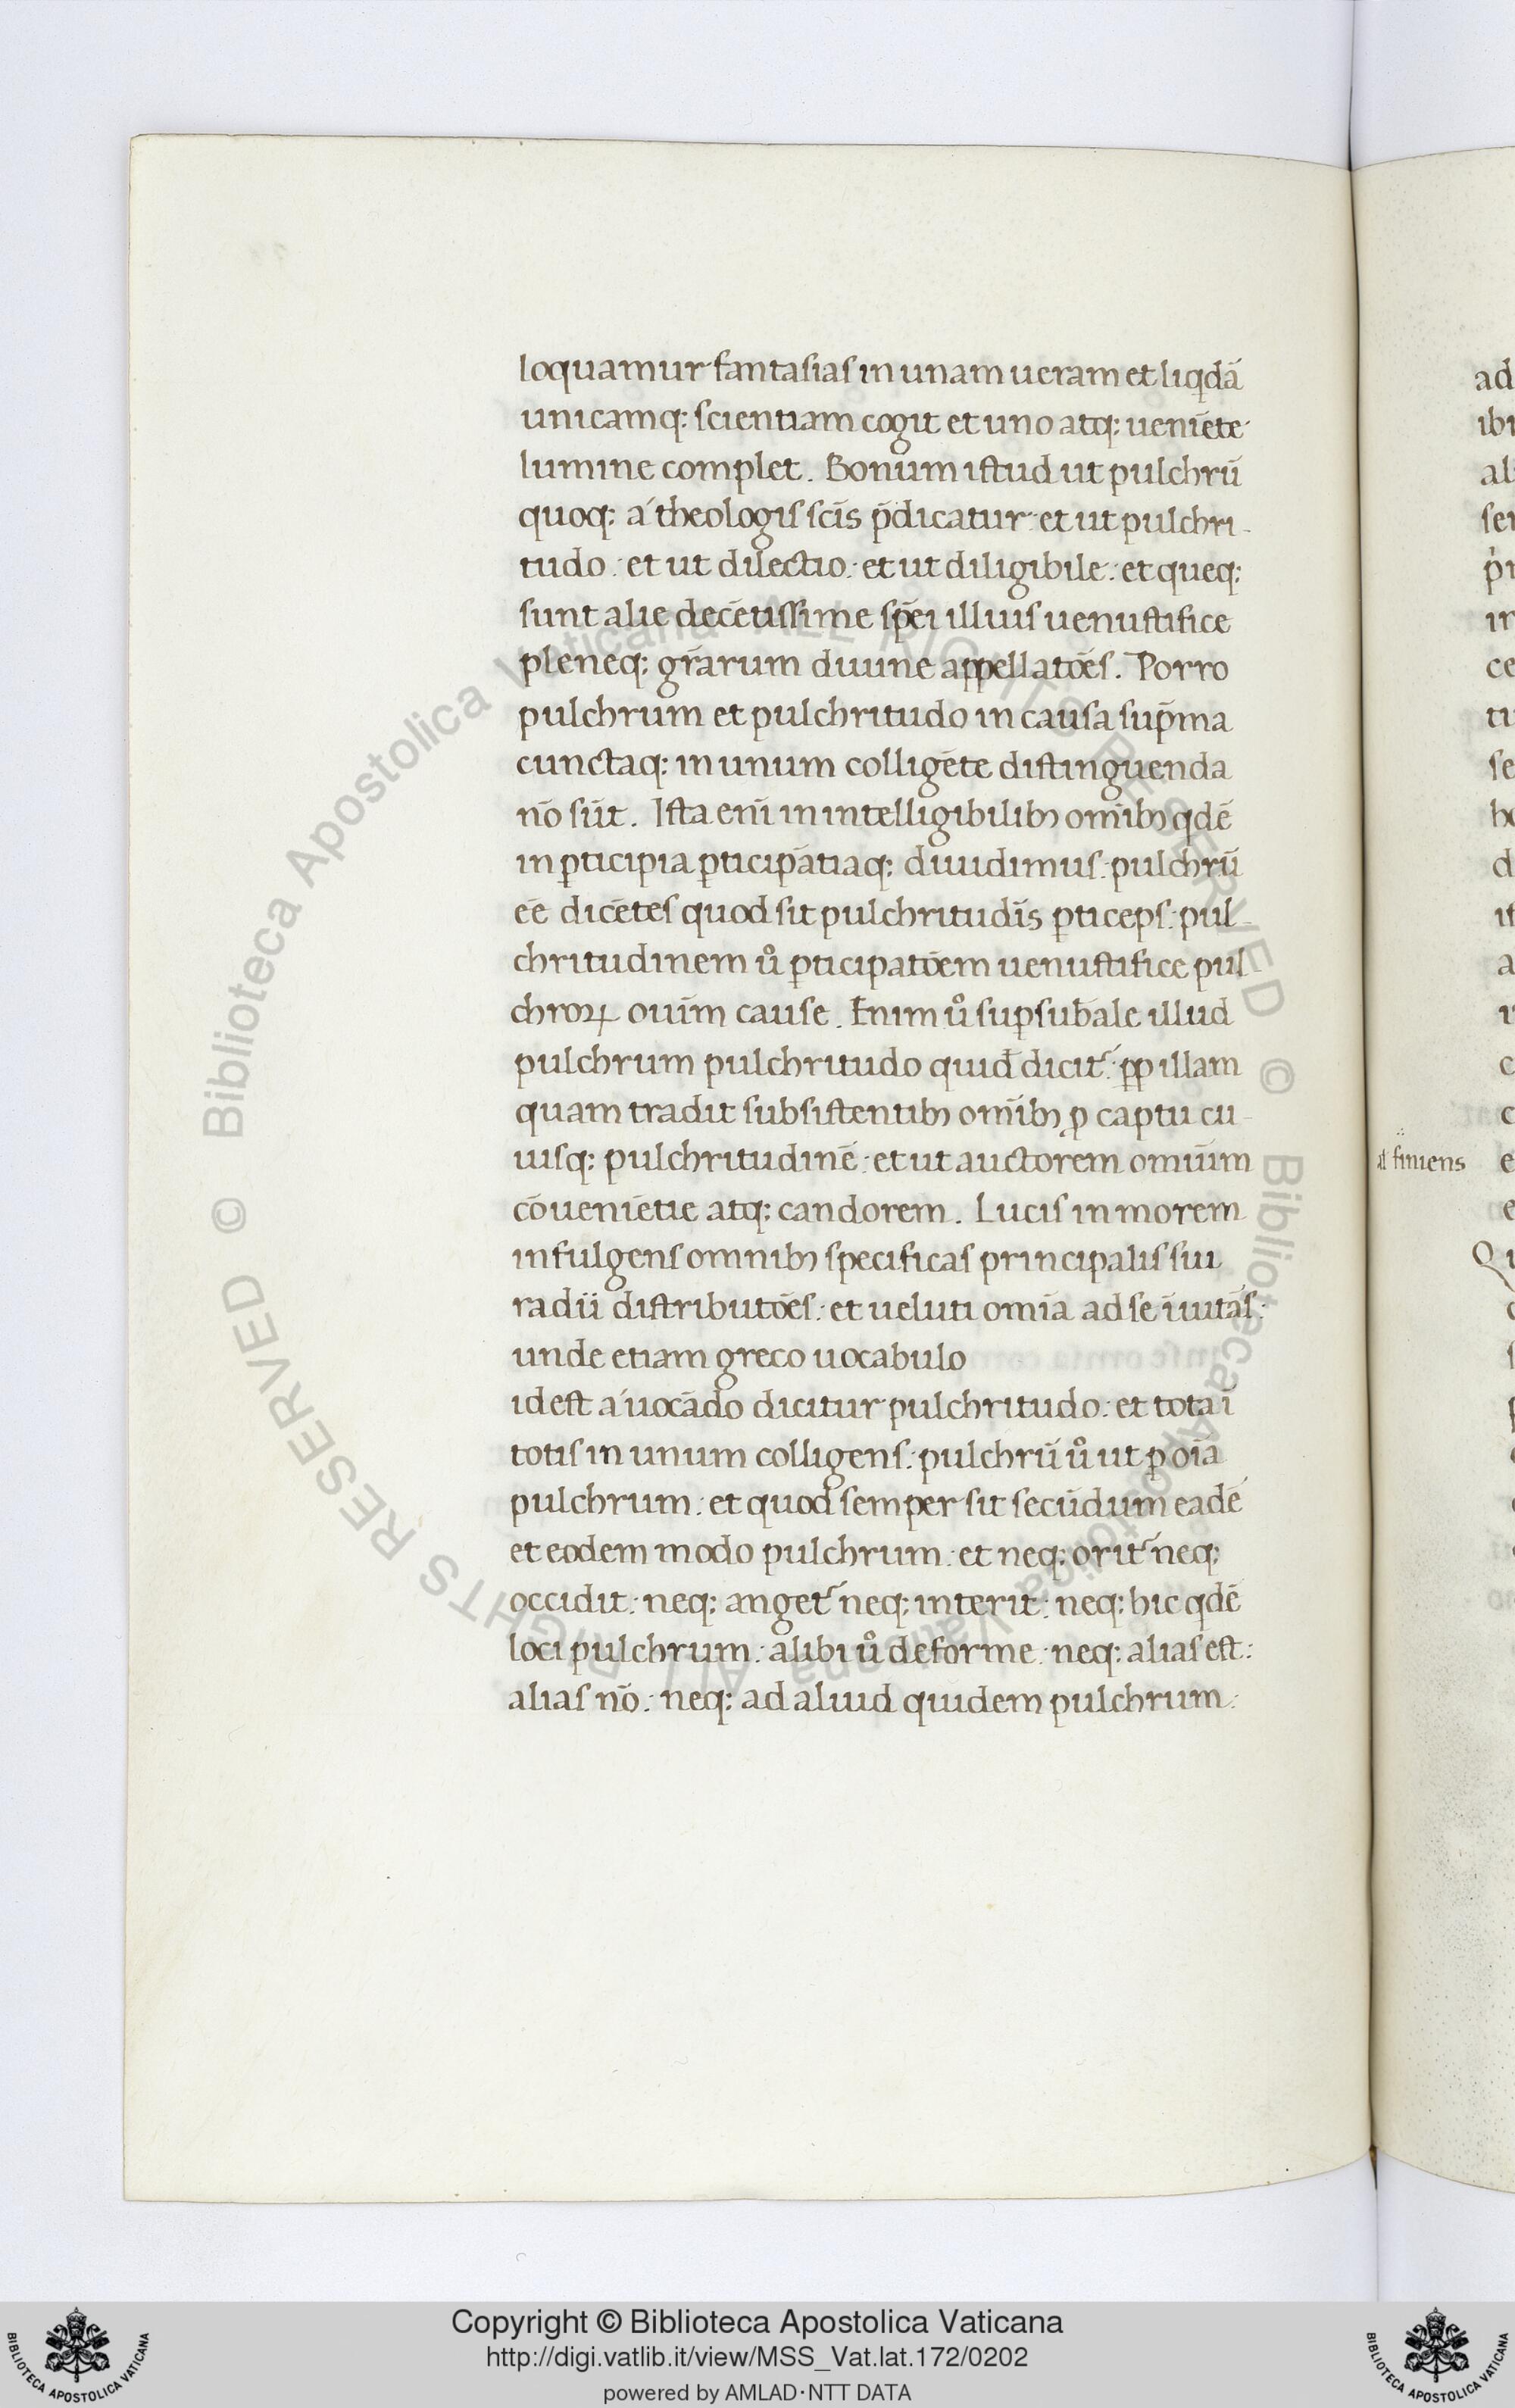 loquamur fantasias in unam ueram et liqdā
unicamq: scientiam cogit et uno atq: ueniēte
lumine complet. Bonum istud ut pulchrū
quoq: a theologis scīs p̄dicatur: et ut pulchri-
tudo: et ut dilectio: et ut diligibile: et queq:
sunt alie decētissime sp̄ei illius uenustifice
pleneq: gr̄arum diuine appellatōes. Porro
pulchrum et pulchritudo in causa sup̄ma
cunctaq: in unum colligēte distinguenda
nō sūt. Ista eni᷑ in intelligibilibꝫ om̄ibꝫ qdē
in ꝑticipia ꝑticipātiaq: diuidimus: pulchrū
eē dicētes quod sit pulchritudīs ꝑticeps: pul-
chritudinem ů ꝑticipatōem uenustifice pul
chroꝝ ouīm cause. Enim ů suꝑsubāle illud
pulchrum pulchritudo quid̄ dicit᷑: ꝓꝑ illam
quam tradit subsistentibꝫ om̄ibꝫ ꝓ captu cu-
iusq: pulchritudinē: et ut auctorem omiūm
cōueniētie atq: candorem. Lucis in morem
infulgens omnibꝫ specificas principalis sui
radii distributōes: et ueluti omīa ad se īuitās:
unde etiam greco uocabulo
id est a uocādo dicitur pulchritudo: et tota ī
totis in unum colligens: pulchrū ů ut ꝑ oīa
pulchrum: et quod semper sit secūdum eadē
et eodem modo pulchrum: et neq: orit᷑ neq:
occidit: neq: anget᷑ neq: interit: neq: hic qdē
loci pulchrum: alibi ů deforme: neq: alias est:
alias nō: neq: ad aliud quidem pulchrum:
al finiens
Copyright © Biblioteca Apostolica Vaticana
http://digi.vatlib.it/view/MSS_Vat.lat.172/0202
powered by AMLAD·NTT DATA
BIBLIOTECA APOSTOLICA VATICANA
BIBLIOTECA APOSTOLICA VATICANA
© Biblioteca Apostolica Vaticana ALL RIGHTS RESERVED © Biblioteca Apostolica Vaticana ALL RIGHTS RESERVED